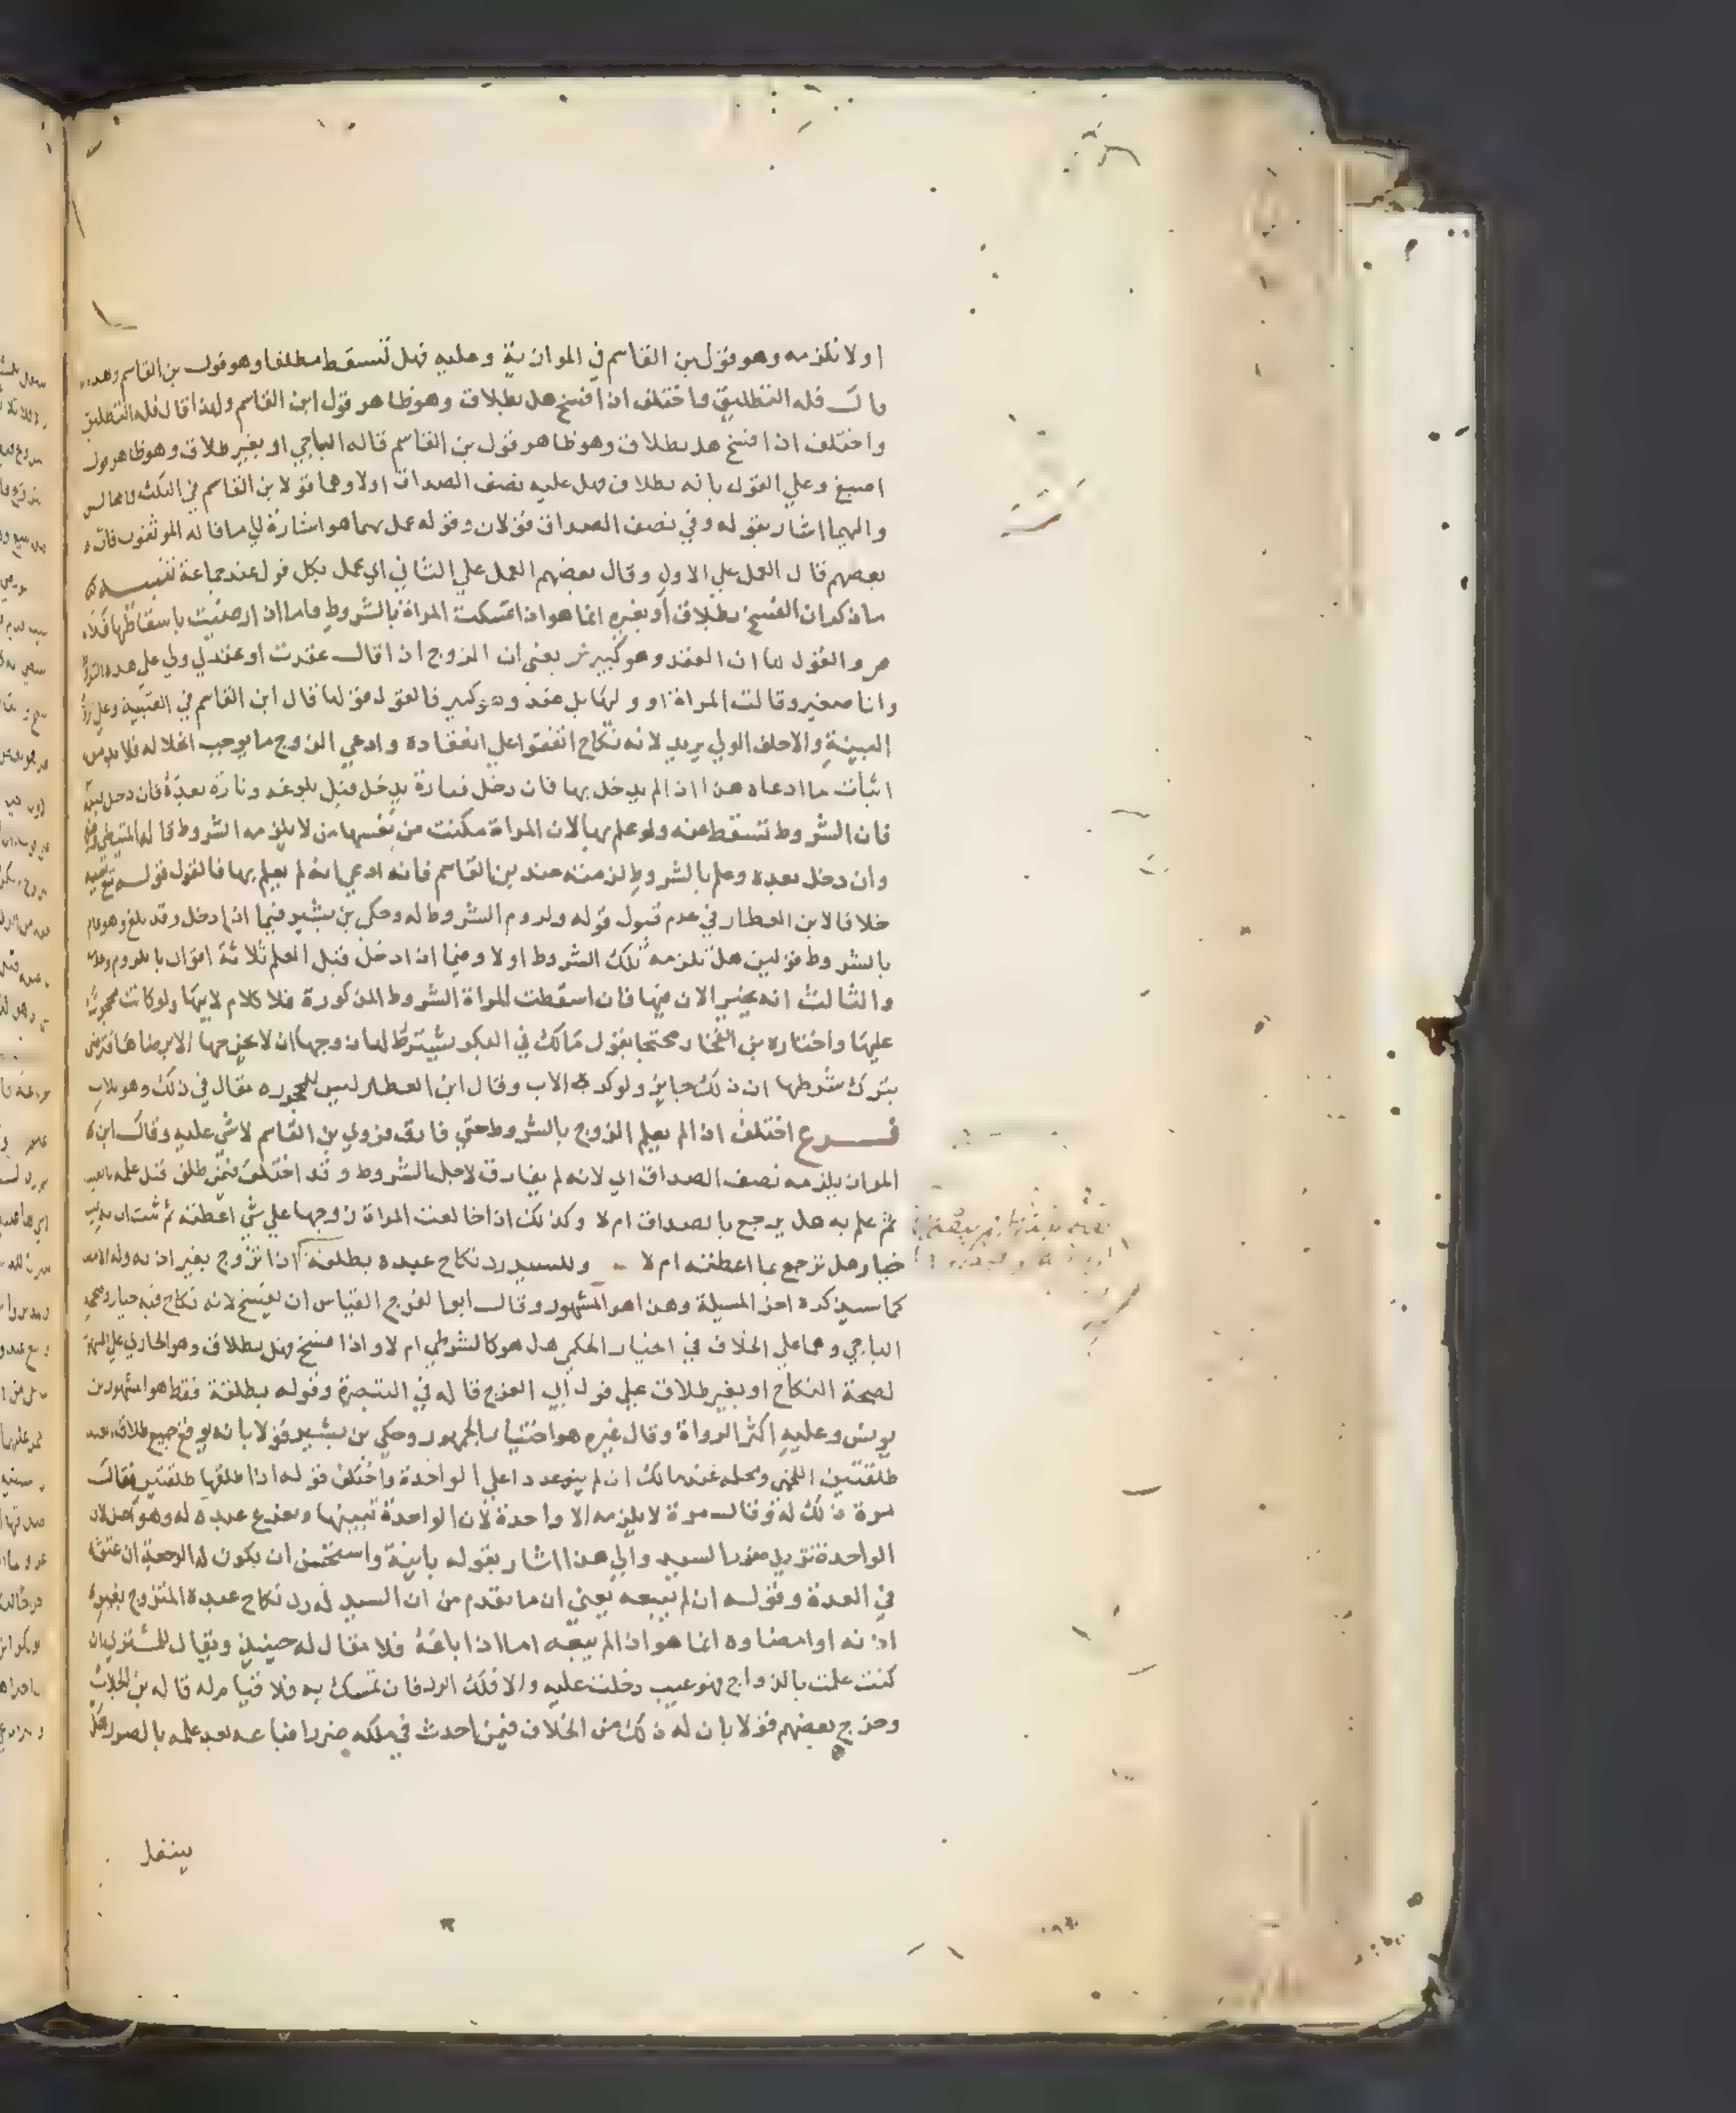 اولا تلزمه وهو قول بن القاسم في الموازية وعليه فهل تسقط مطلقا وهو قول بن القاسم وهذه
فله التطليق واختلف اذا فسخ هل بطلاق وهو ظاهر قول ابن القاسم ولهذا قال فله التطليق
واختلف اذا فسخ هل بطلاق وهو ظاهر قول بن القاسم قاله الباجي او بغير طلاق وهو ظاهر قول
اصبغ وعلي القول بانه بطلاق فهل عليه نصف الصداق اولا وهما قولا بن القاسم في
واليهما اشار بقوله وفي نصف الصداق قولان وقوله عمل بهما هو اشارة لما قاله الموثقون فان
بعضهم قال العمل علي الاول وقال بعضهم العمل علي الثاني اي عمل بكل قول عند جماعة تنبيه
ما ذكر ان الفسخ بطلاق او بغيره انما هو اذا تمسكت المراة بالشروط واما اذا رضيت باسقاطها فلا
ص والقول لها ان العقد وهو كبير ش يعني ان الزوج اذا قال عقدت او عقد لي ولي علي هذه
وانا صغير وقالت المراة او وليها بل عقد وهو كبير فالقول قولها قال ابن القاسم في العتبية وعلي
البينة والاحلف الولي يريد لانه نكاح اتفقوا علي انعقاده وادعي الزوج ما يوجب انحلاله فلا بد من
اثبات ما ادعاه هذا اذا لم يدخل بها فان دخل فتارة يدخل قبل بلوغه وتارة بعده فان دخل
فان الشروط تسقط عنه ولو علم بها لان المراة مكنت من نفسها من لا يلزمه الشروط قاله المتيطي
وان دخل بعده وعلم بالشروط لزمته عند بن القاسم فانه ادعي انه لم يعلم بها فالقول قوله
خلافا لابن العطار في عدم قبول قوله ولزوم الشروط له وحكي بن بشير فيما اذا دخل وقد بلغ وهو عالم
بالشروط قولين هل تلزمه تلك الشروط اولا وفيما اذا دخل قبل العلم ثلاثة اقوال باللزوم
والثالث انه يخير الان فيها فان اسقطت المراة الشروط المذكورة فلا كلام لابيها ولو كانت محجورا
عليها واختاره بن الفخار محتجا بقول مالك في البكر يشترط لها زوجها ان لا يخرجها الا برضاها فترضي
بترك شرطها ان ذلك جايز ولو كره الاب وقال ابن العطار ليس للمحجورة مقال في ذلك وهو للاب
فرع اختلف اذا لم يعلم الزوج بالشروط حتي فارق فروي بن القاسم لا شي عليه وقال ابن
المواز يلزمه نصف الصداق اي لانه لم يفارق لاجل الشروط وقد اختلف فيمن طلق قبل علمه بالعيب
ثم علم به هل يرجع بالصداق ام لا وكذلك اذا خالعت المراة زوجها علي شي اعطته ثم ثبت ان به عيب
خيار هل ترجع بما اعطته ام لا وللسيد رد نكاح عبده بطلقة اذا تزوج بغير اذنه وله الامضا
كما سيذكره اخر المسيلة وهذا هو المشهور وقال ابوا الفرج القياس ان يفسخ لانه نكاح فيه خيار
الباجي وهما علي الخلاف في الخيار الحكمي هل هو كالشرطي ام لا واذا فسخ فهل بطلاق وهو الجاري علي المشهور
لصحة النكاح او بغير طلاق علي قول ابي الفرج قاله في التبصرة وقوله بطلقة فقط هو المشهور بن
يونس وعليه اكثر الرواة وقال غيره هو اختيار الجمهور وحكي بن بشير قولا بانه يوقع جميع طلاق العبد
طلقتين اللخمي ومحله عند مالك ان لم يتوعدد اعلي الواحدة واختلف قوله اذا طلقها طلقتين فقال
مرة ذلك له وقال مرة لا يلزمه الا واحدة لان الواحدة تبينها وتفرغ عبده له وهو احسن لان
الواحدة تزيل ضرر السيد والي هذا اشار بقوله باينة واستحسن ان يكون له الرجعة ان عتق
في العدة وقوله ان لم يبعه يعني ان ما تقدم من ان السيد له رد نكاح عبده المتزوج بغير
اذنه او امضاوه انما هو اذا لم يبعه اما اذا باعه فلا مقال له حينيذ ويقال للمشتري ان
كنت علمت بالزواج فهو عيب دخلت عليه والا فلك الرد فان تمسك به فلا قيام له قاله بن الجلاب
وخرج بعضهم قولا بان له ذلك من الخلاف فيمن احدث في ملكه ضررا فباعه بعد علمه بالضرر هل
ينتقل